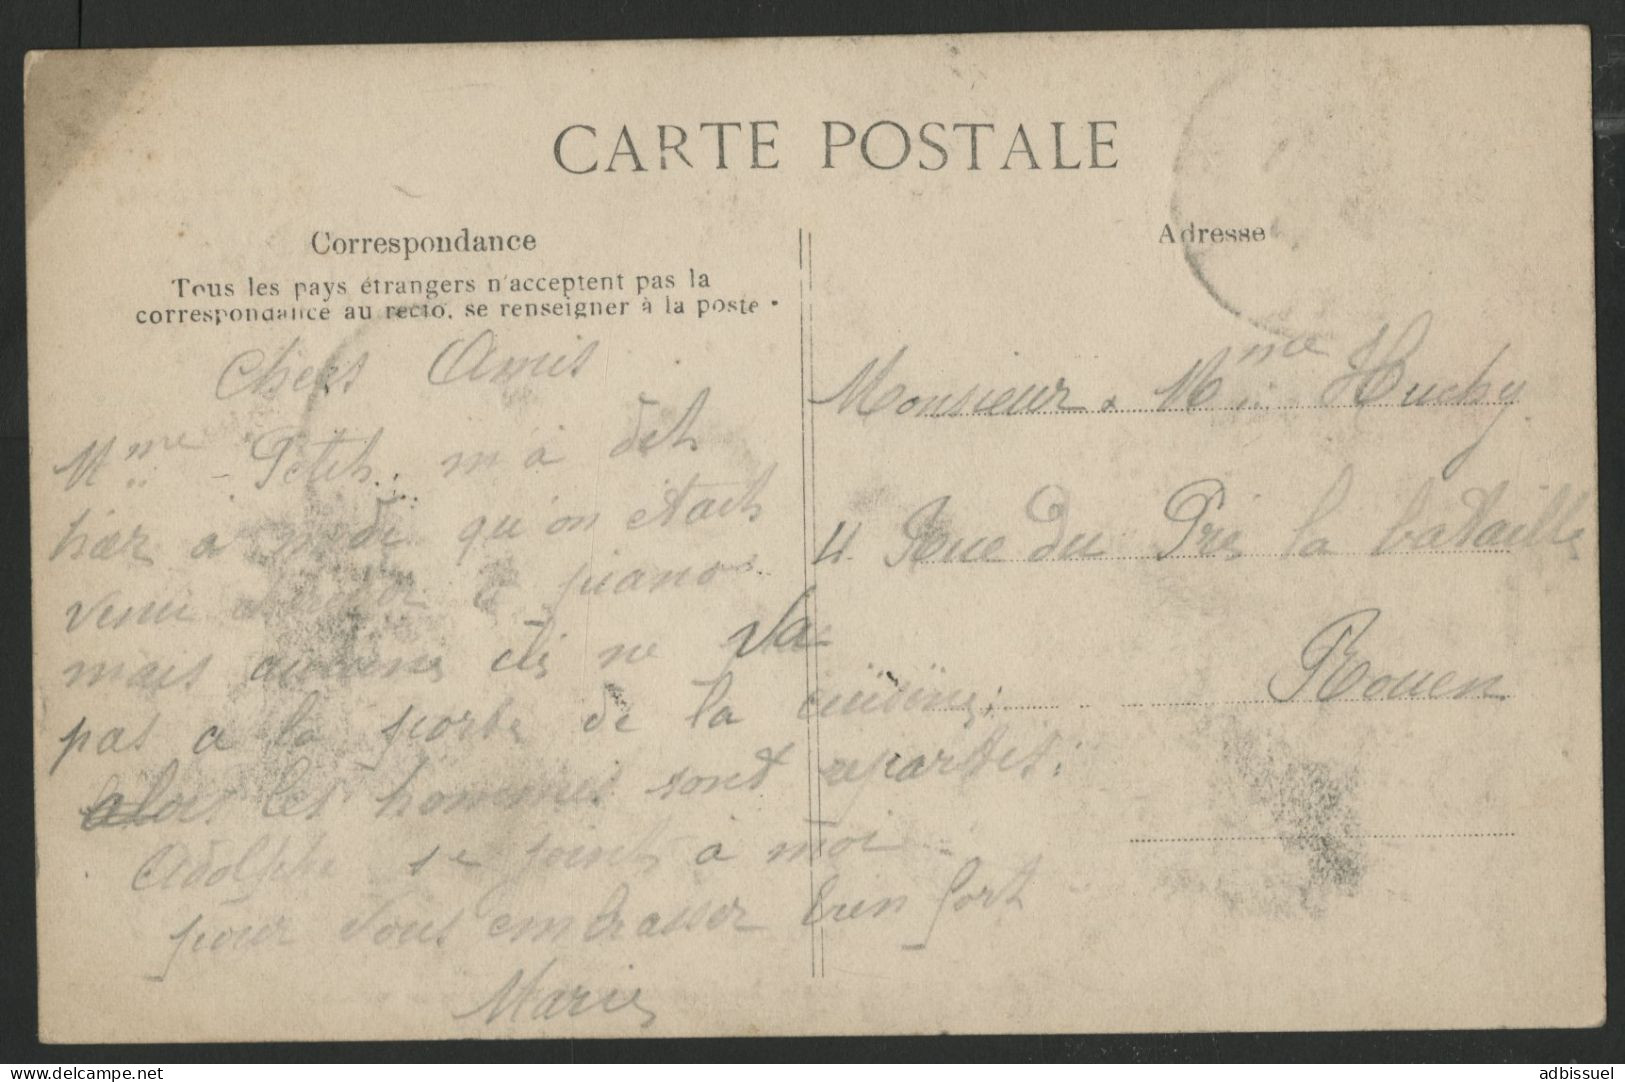 CARTE POSTALE
Correspondance
Tous les pays étrangers n'acceptent pas la
correspondance au recto, se renseigner à la poste
Chers Amis
Mme Petit m'a dit
hier à midi qu'on était
venu chercher le piano
mais aucune clé ne va
pas a la porte de la cuisine;
alors les hommes sont repartis.
Adolphe se joint à moi
pour vous embrasser bien fort
Marie
Adresse
Monsieur & Mme Huchy
4 Rue du Pré la bataille
Rouen
delcampe.net
adbissuel